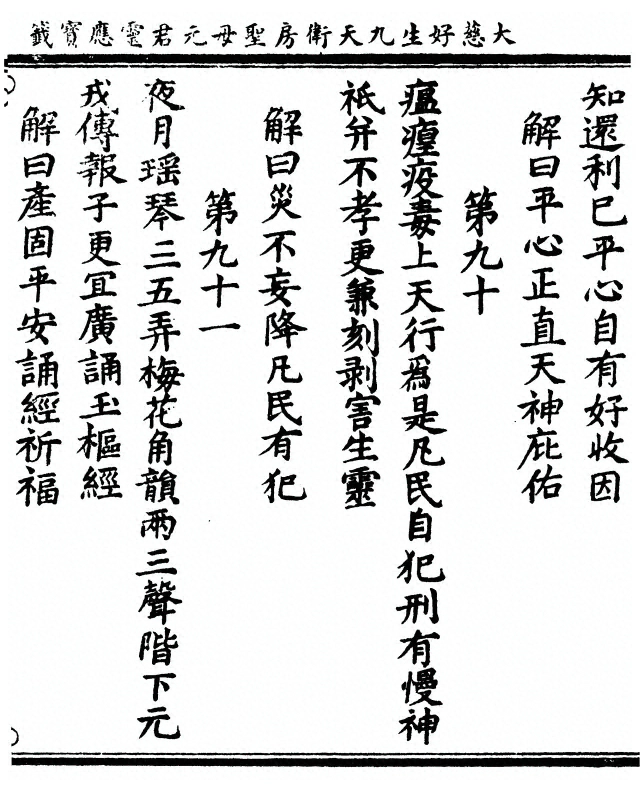 大慈好生九天衛房聖母元君靈應寶籤
知還利已平心自有好收因
解曰平心正直天神庇佑
第九十
瘟瘴疫毒上天行爲是凡民自犯刑有慢神
祇并不孝更兼刻剥害生靈
解曰災不妄降凡民有犯
第九十一
夜月瑶琴三五弄梅花角韻兩三聲階下元
戎傳報子更宜廣誦玉樞經
解曰產固平安誦經祈福